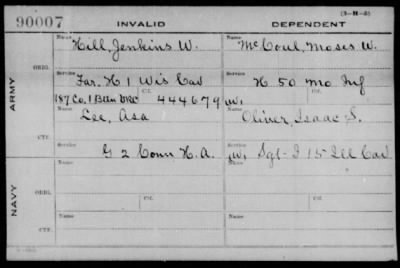 90007 INVALID DEPENDENT (3-H-3)
Name Hill, Jenkins W. Name McCoul, Moses W.
ORIG.
Service Far. H 1 Wis Cav Service H 50 Mo Inf
ARMY
187 Co. 1 Battn VRC Ctf. 444679 W, Ctf.
Name Lee, Asa Name Oliver, Isaac S.
CTF.
Service G 2 Conn H.A. Service W, Sgt- I 15 Ill Cav
ORIG.
Ctf. Ctf.
NAVY
Name Name
CTF.